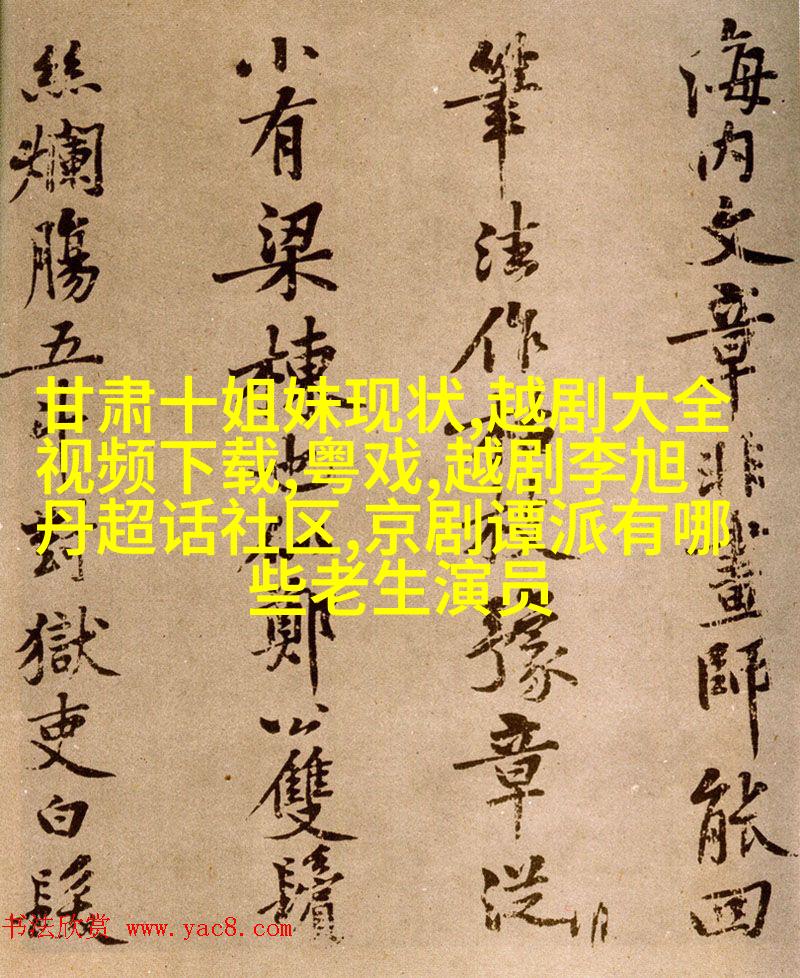 甘肃十姐妹现状,越剧大全
视频下载,粤戏,越剧李旭
丹超话社区,京剧谭派有哪
些老生演员
海内文章非畫師能回
筆法作枝豫章從
小有梁棟鄭公雙鬢
絲爛腸五斗對獄吏白髮
书法欣赏 www.yac8.com